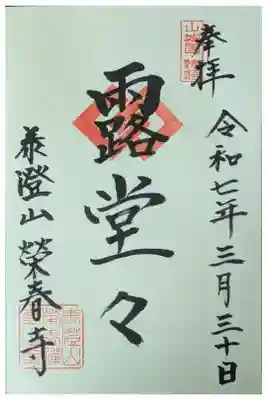 奉拝
令和七年三月三十日
露堂々
澄山 榮春寺